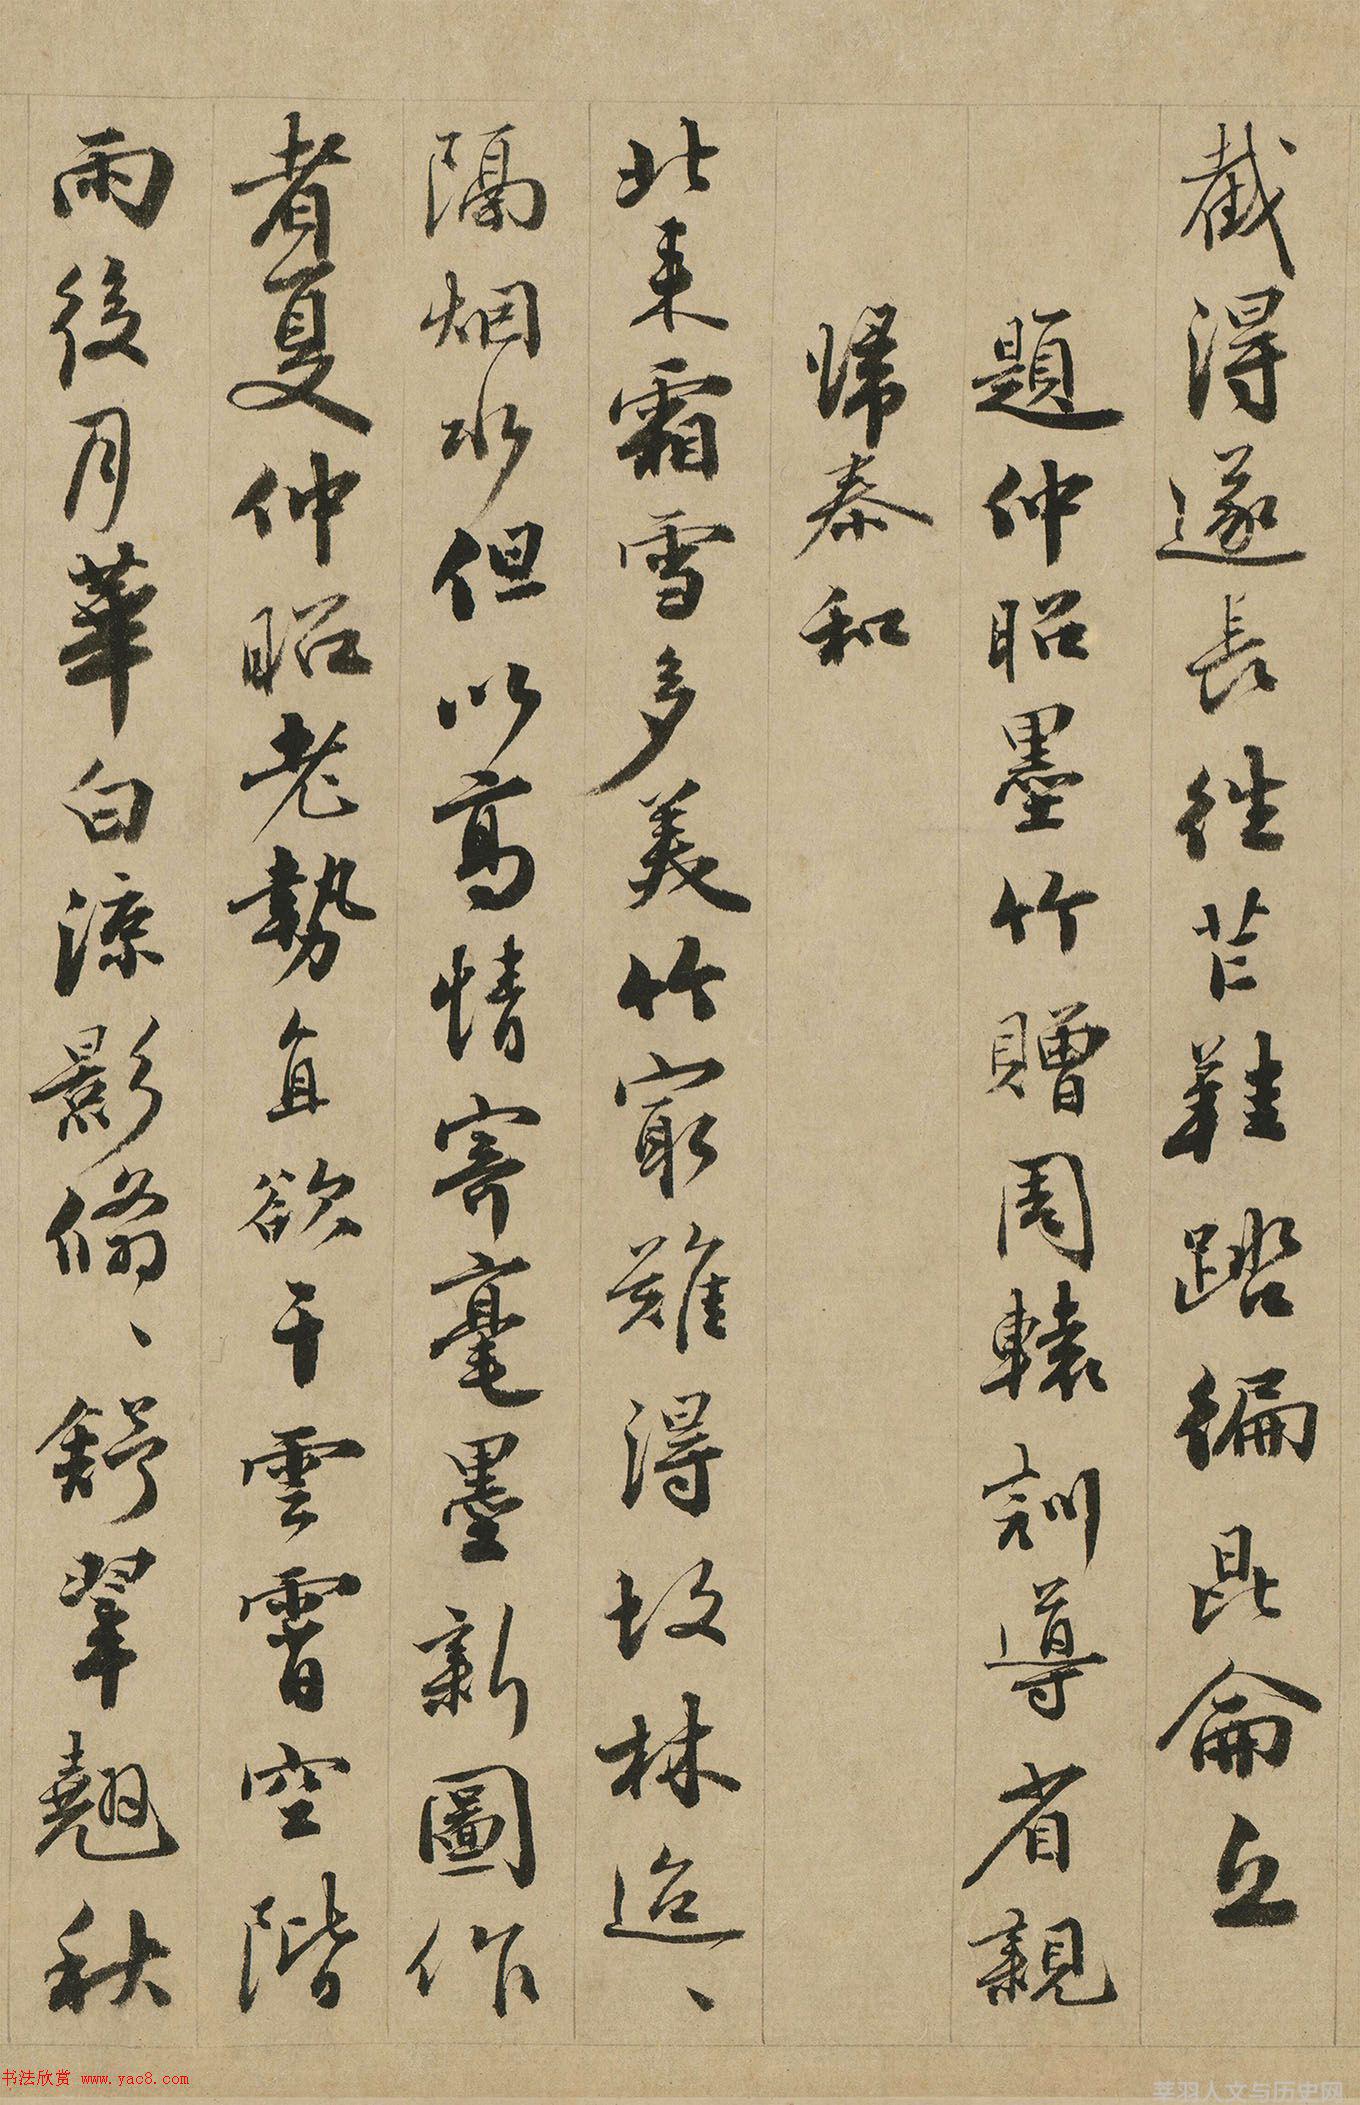 截得遂長往芒鞋踏徧崑崙丘
題仲昭墨竹贈周轅訓導省親
歸泰和
北來霜雪多美竹寂難得故林迢〻
隔烟水但以高情寄毫墨新圖作
者夏仲昭老勢直欲干雲霄空階
雨後月華白涼影翛〻舒翠翹秋
书法欣赏 www.yac8.com
莘羽人文与历史网